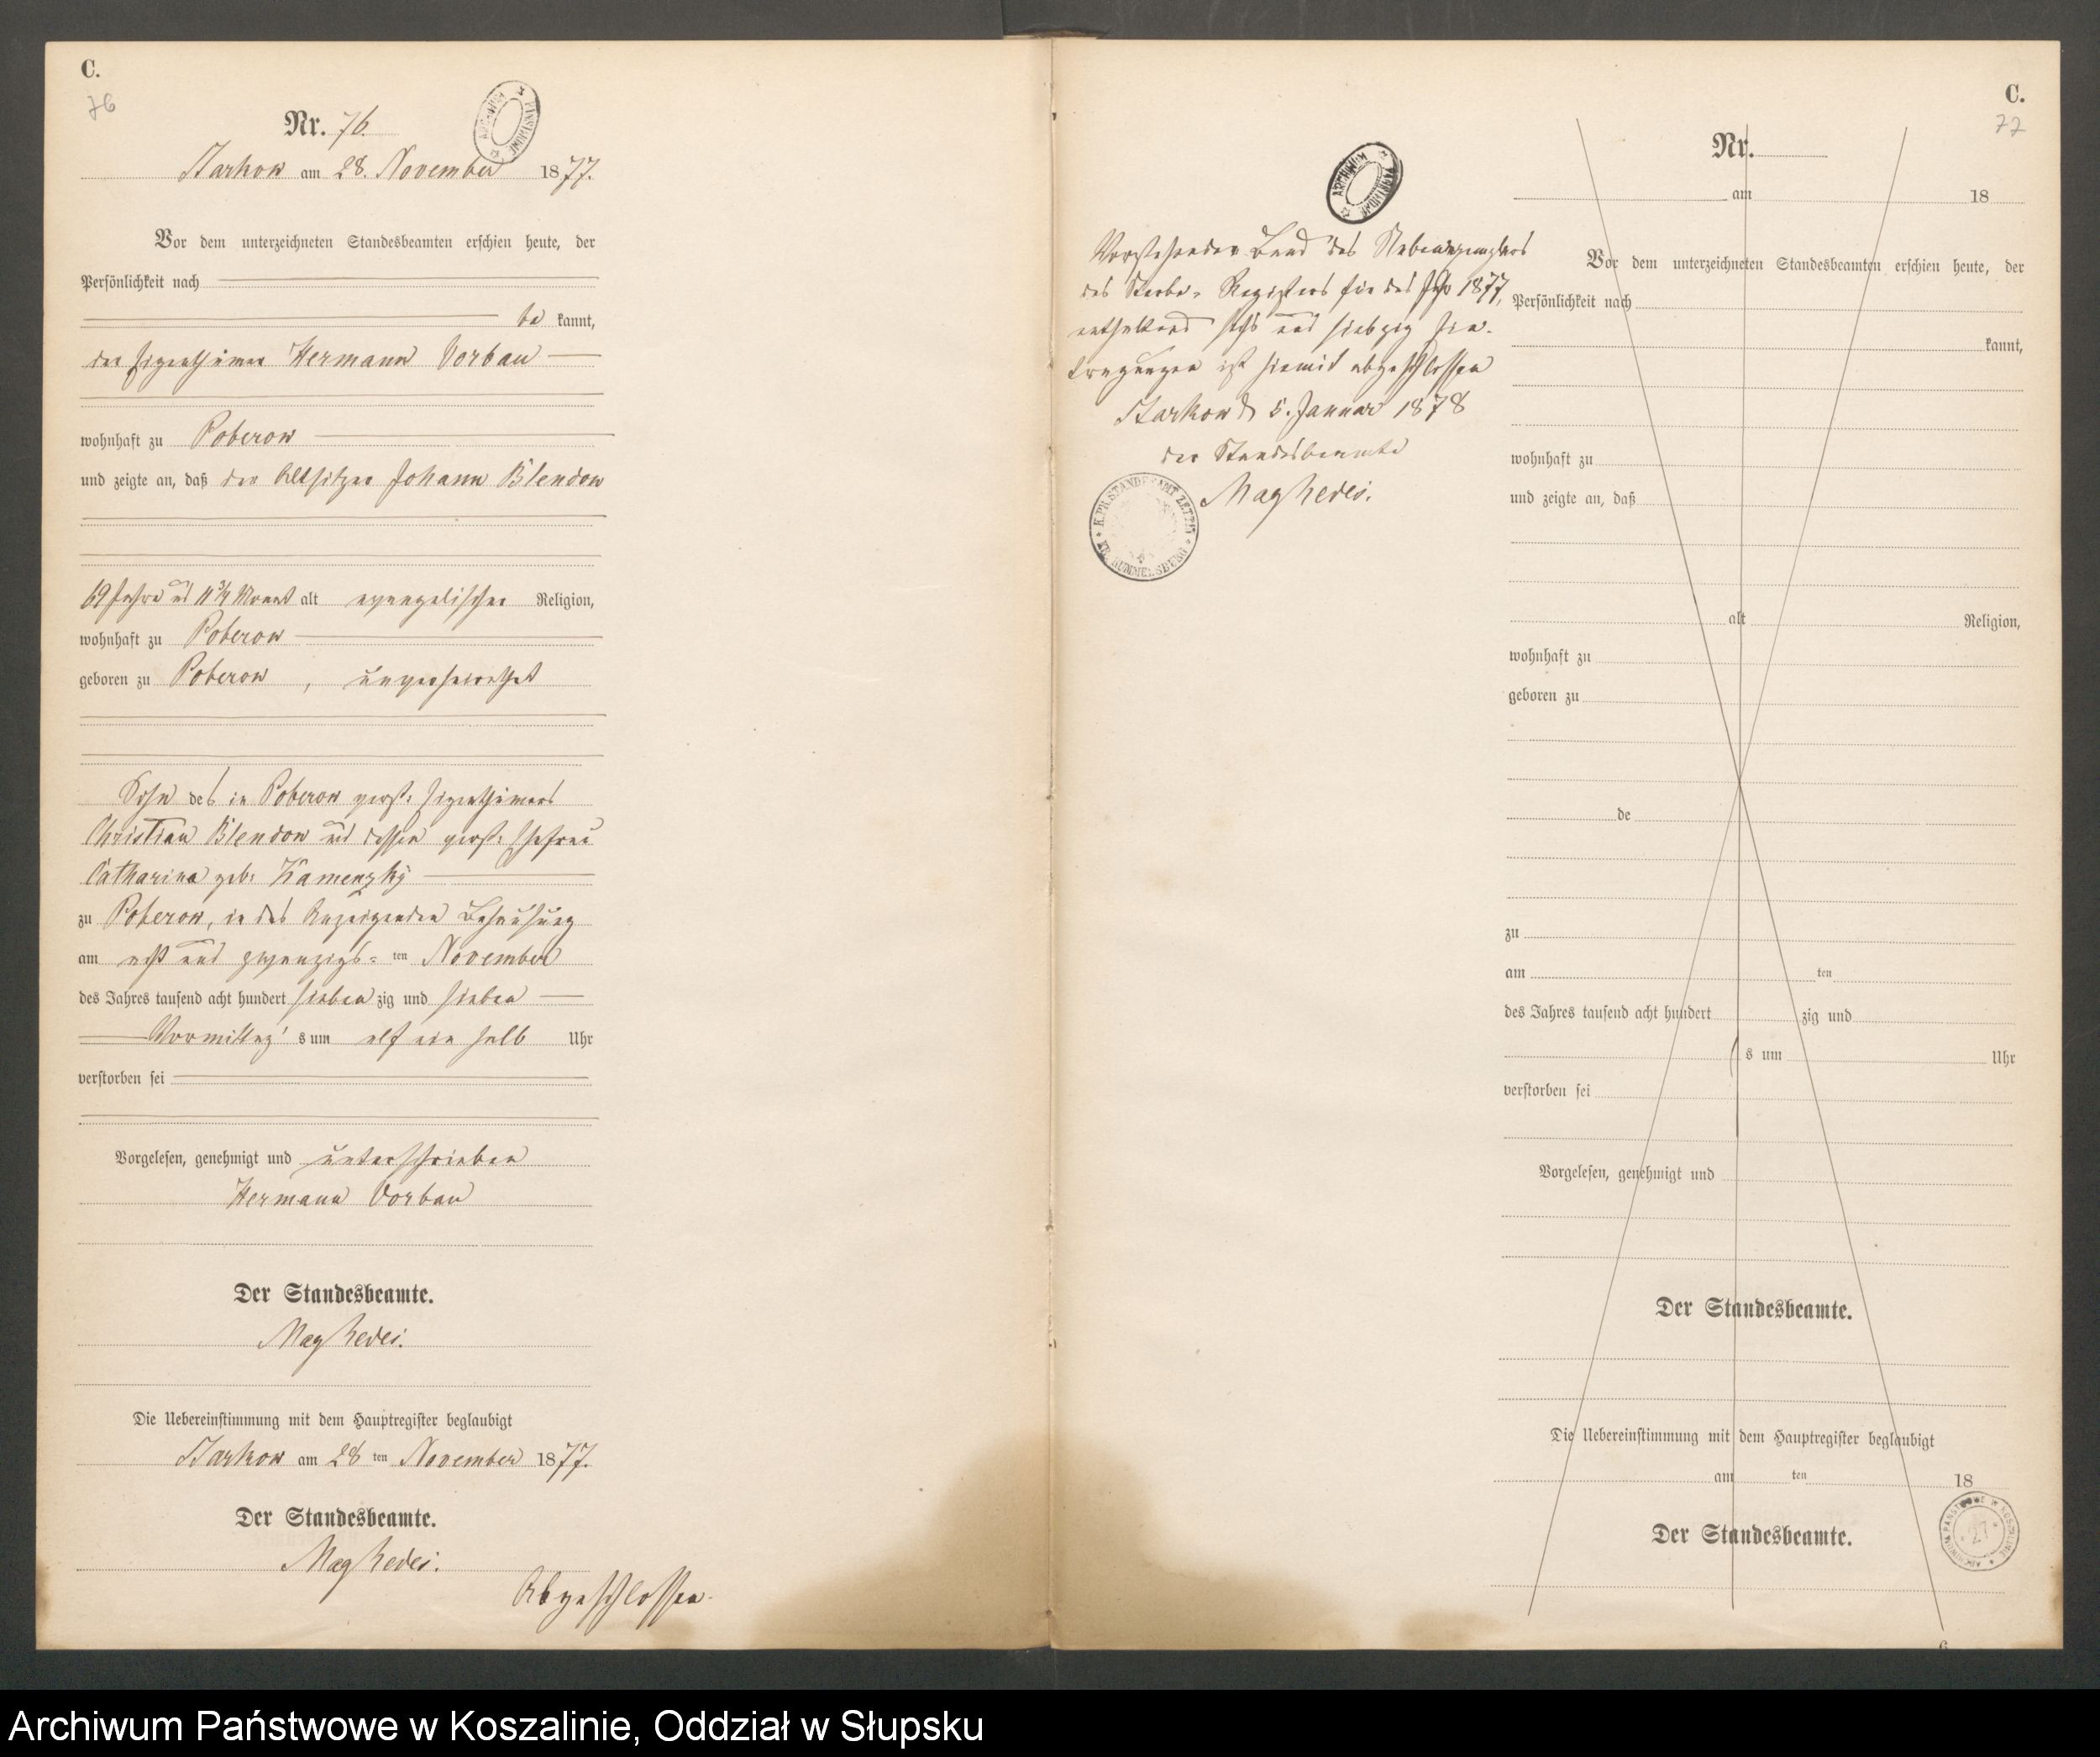 C.
76
Nr. 76.
Starkow am 28. November 1877.
Vor dem unterzeichneten Standesbeamten erschien heute, der
Persönlichkeit nach
be kannt,
der Eigenthümer Hermann Vorbau
wohnhaft zu Poberow
und zeigte an, daß der Altsitzer Johann Blendow
69 Jahre und 11 3/4 Monat alt evangelischer Religion,
wohnhaft zu Poberow
geboren zu Poberow, unverheirathet
Sohn des in Poberow verst. Eigenthümers
Christian Blendow und dessen verst. Ehefrau
Catharina geb. Kamenzky
zu Poberow, in des Anzeigenden Behausung
am acht und zwanzigs=ten November
des Jahres tausend acht hundert sieben zig und sieben
Vormittag's um elf ein halb Uhr
verstorben sei
Vorgelesen, genehmigt und unterschrieben
Hermann Vorbau
Der Standesbeamte.
Die Uebereinstimmung mit dem Hauptregister beglaubigt
Starkow am 28 ten November 1877.
Der Standesbeamte.
Abgeschlossen.
ARCHIWUM PAŃSTWOWE
Vorstehender Band des Nebenexemplars
des Sterbe-Registers für das Jahr 1877,
enthaltend sechs und siebzig Ein-
tragungen ist hiermit abgeschlossen
Starkow d. 5. Januar 1878
der Standesbeamte
K. PR. STANDESAMT ZETTIN
KR. RUMMELSBURG
C.
77
Nr.
am 18
Vor dem unterzeichneten Standesbeamten erschien heute, der
Persönlichkeit nach
kannt,
wohnhaft zu
und zeigte an, daß
alt Religion,
wohnhaft zu
geboren zu
de
zu
am ten
des Jahres tausend acht hundert zig und
s um Uhr
verstorben sei
Vorgelesen, genehmigt und
Der Standesbeamte.
Die Uebereinstimmung mit dem Hauptregister beglaubigt
am ten 18
Der Standesbeamte.
27
Archiwum Państwowe w Koszalinie, Oddział w Słupsku